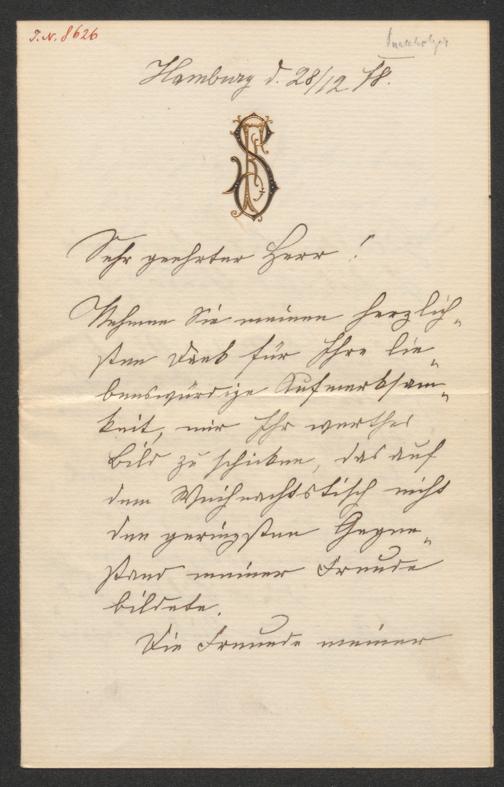 I.N. 8626
Hamburg d. 28/12 78.
Sehr geehrter Herr!
Nehmen Sie meinen herzlich-
sten Dank für Ihre lie-
benswürdige Aufmerksam-
keit, mir Ihr werthes
Bild zu schicken, das auf
dem Weihnachtstisch nicht
den geringsten Gegen-
stand meiner Freude
bildete.
Die Freunde meiner